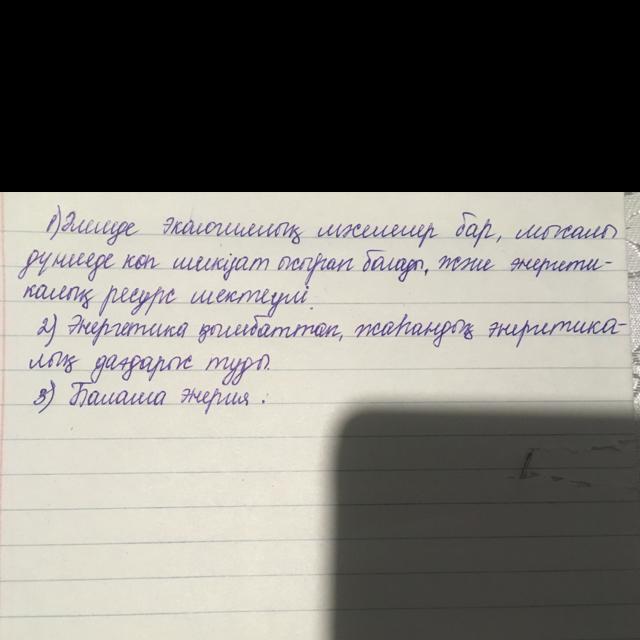 1) Әлемде экалогиялық мәселелер бар, мысалы
дүниеде көп шикізат ысырап болады, және энергети-
калық ресурс шектеулі.
2) Энергетика қымбаттап, жаһандық энергетика-
лық дағдарыс туды.
3) Балама энергия.